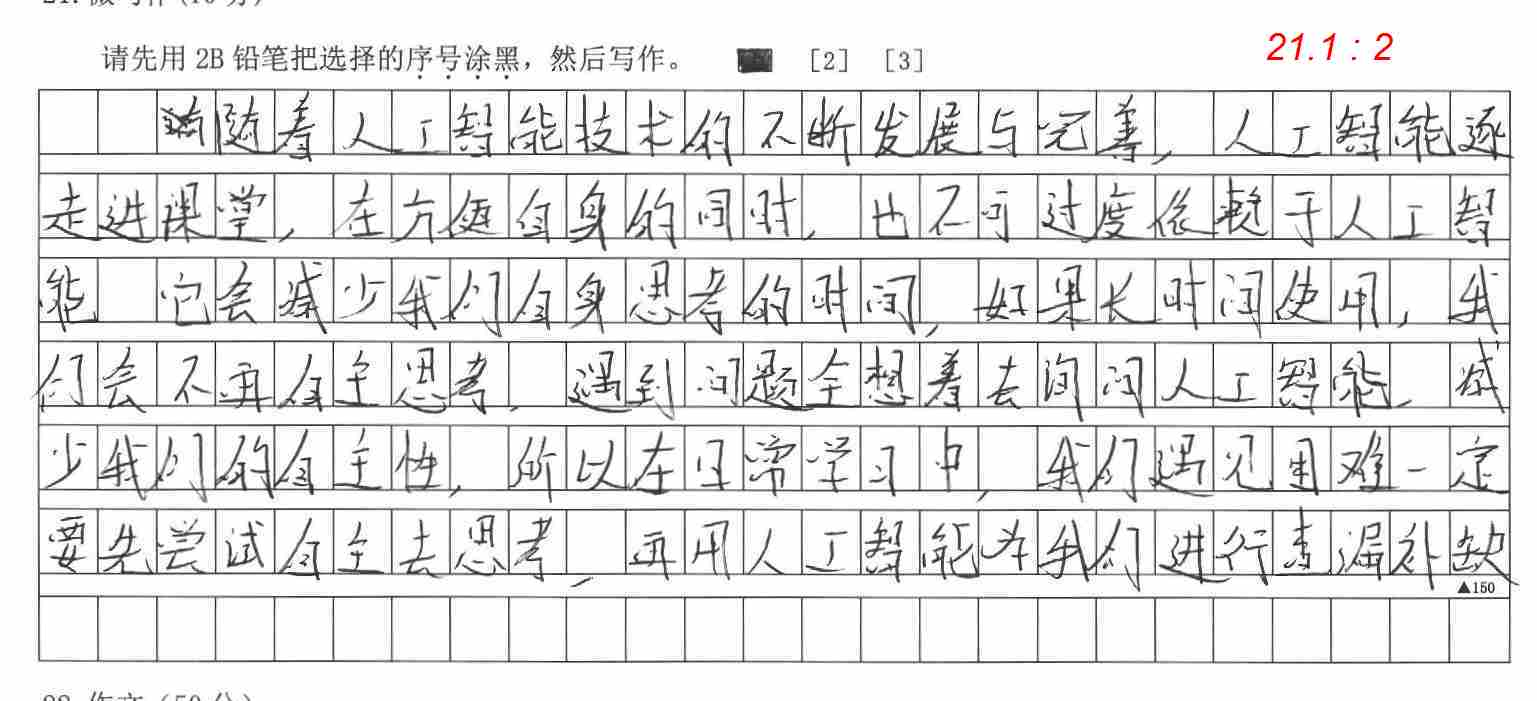 请先用 2B 铅笔把选择的序号涂黑，然后写作。 [2] [3]
21.1：2
随着人工智能技术的不断发展与完善，人工智能逐
走进课堂，在方便自身的同时，也不可过度依赖于人工智
能 它会减少我们自身思考的时间，如果长时间使用，我
们会不再自主思考，遇到问题全想着去询问人工智能，减
少我们的自主性，所以在日常学习中，我们遇见困难一定
要先尝试自主去思考，再用人工智能为我们进行查漏补缺
▲150